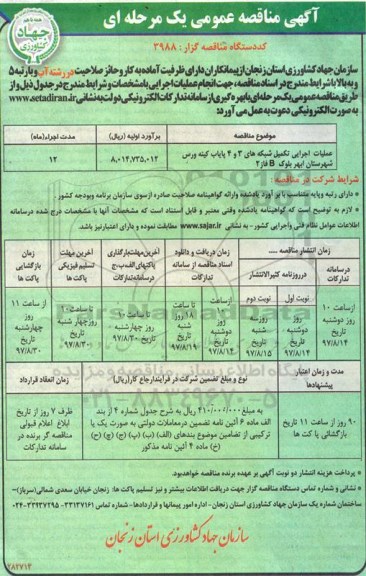 آگهی مناقصه عمومی یک مرحله ای
جهاد کشاورزی
کد دستگاه مناقصه گزار : ۳۹۸۸
سازمان جهاد کشاورزی استان زنجان از پیمانکاران دارای ظرفیت آماده به کار و حائز صلاحیت در رشته آب و با رتبه ۵
و به بالا با شرایط مندرج در اسناد مناقصه، جهت انجام عملیات اجرایی با مشخصات و شرایط مندرج در جدول ذیل و از
طریق مناقصه عمومی یک مرحله ای با بهره گیری از سامانه تدارکات الکترونیکی دولت به نشانی www.setadiran.ir
به صورت الکترونیکی دعوت به عمل می آورد:
موضوع مناقصه
برآورد اولیه (ریال)
مدت اجراء(ماه)
عملیات اجرایی تکمیل شبکه های ۳ و ۴ پایاب کینه ورس
شهرستان ابهر بلوک B فاز۲
۸,۰۱۴,۷۳۵,۰۱۲
۱۲
شرایط شرکت در مناقصه:
* دارای رتبه و پایه متناسب با بر آورد یادشده وارائه گواهینامه صلاحیت صادره ازسوی سازمان برنامه وبودجه کشور .
* لازم به توضیح است که گواهینامه یادشده وقتی معتبر و قابل استناد است که مشخصات آنها با مشخصات درج شده درسامانه
اطلاعات عوامل نظام فنی واجرایی کشور - به نشانی www.sajar.ir مطابقت نموده و دارای اعتبارنیز باشد.
زمان انتشار مناقصه .....
درسامانه تدارکات
درروزنامه کثیرالانتشار
نوبت اول
نوبت دوم
زمان دریافت و دانلود اسناد مناقصه از سامانه تدارکات
آخرین مهلت بارگذاری پاکتهای الف،ب،ج درسامانه تدارکات
آخرین مهلت تسلیم فیزیکی پاکت ها
زمان بازگشایی پاکت ها
ازساعت ۱۰ روز دوشنبه تاریخ ۹۷/۸/۱۴
روز دوشنبه تاریخ ۹۷/۸/۱۴
روز سه شنبه تاریخ ۹۷/۸/۱۵
ازساعت ۱۰ روز دوشنبه تاریخ ۹۷/۸/۱۴
تا ساعت ۱۸ روز شنبه تاریخ ۹۷/۸/۱۹
تا ساعت ۱۰ روز چهارشنبه تاریخ ۹۷/۸/۳۰
تاساعت ۱۰ روز چهار شنبه تاریخ ۹۷/۸/۳۰
از ساعت ۱۱ روز چهارشنبه تاریخ ۹۷/۸/۳۰
مدت و زمان اعتبار پیشنهادها
نوع و مبلغ تضمین شرکت در فرایندارجاع کار(ریال)
زمان انعقاد قرارداد
۹۰ روز از ساعت ۱۱ تاریخ بازگشائی پا کت ها
به مبلغ ۴۱۰/۰۰۰/۰۰۰ ریال به شرح جدول شماره ۴ از بند
الف ماده ۶ آئین نامه تضمین درمعاملات دولتی به صورت یک یا
ترکیبی از تضامین موضوع بندهای (الف) (ب) (پ) (ج) (چ) (ح)
(خ) ماده ۴ آئین نامه مذکور
ظرف ۷ روز از تاریخ ابلاغ اعلام قبولی مناقصه گر برنده در سامانه تدارکات
* پرداخت هزینه انتشار دو نوبت آگهی بر عهده برنده مناقصه خواهدبود.
* نشانی و شماره تماس دستگاه مناقصه گزار جهت دریافت اطلاعات بیشتر و نیز تسلیم پاکت ها: زنجان خیابان سعدی شمالی(سرباز)-
ساختمان شماره یک سازمان جهاد کشاورزی استان زنجان - اداره امور پیمانها و قراردادها- شماره تماس ۳۳۱۳۷۱۶۱ -۰۲۴
سازمان جهاد کشاورزی استان زنجان
۲۸۲۷۱۴